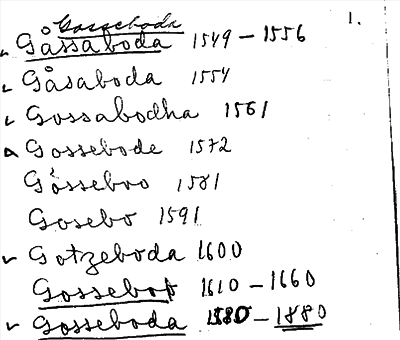 Gosseboda 1.
Gåssaboda 1549 – 1556
Gåsaboda 1554
Gossabodha 1561
Gossebode 1572
Gósseboo 1581
Gosebo 1591
Gotzeboda 1600
Gossebo 1610 – 1660
Gosseboda – 1880